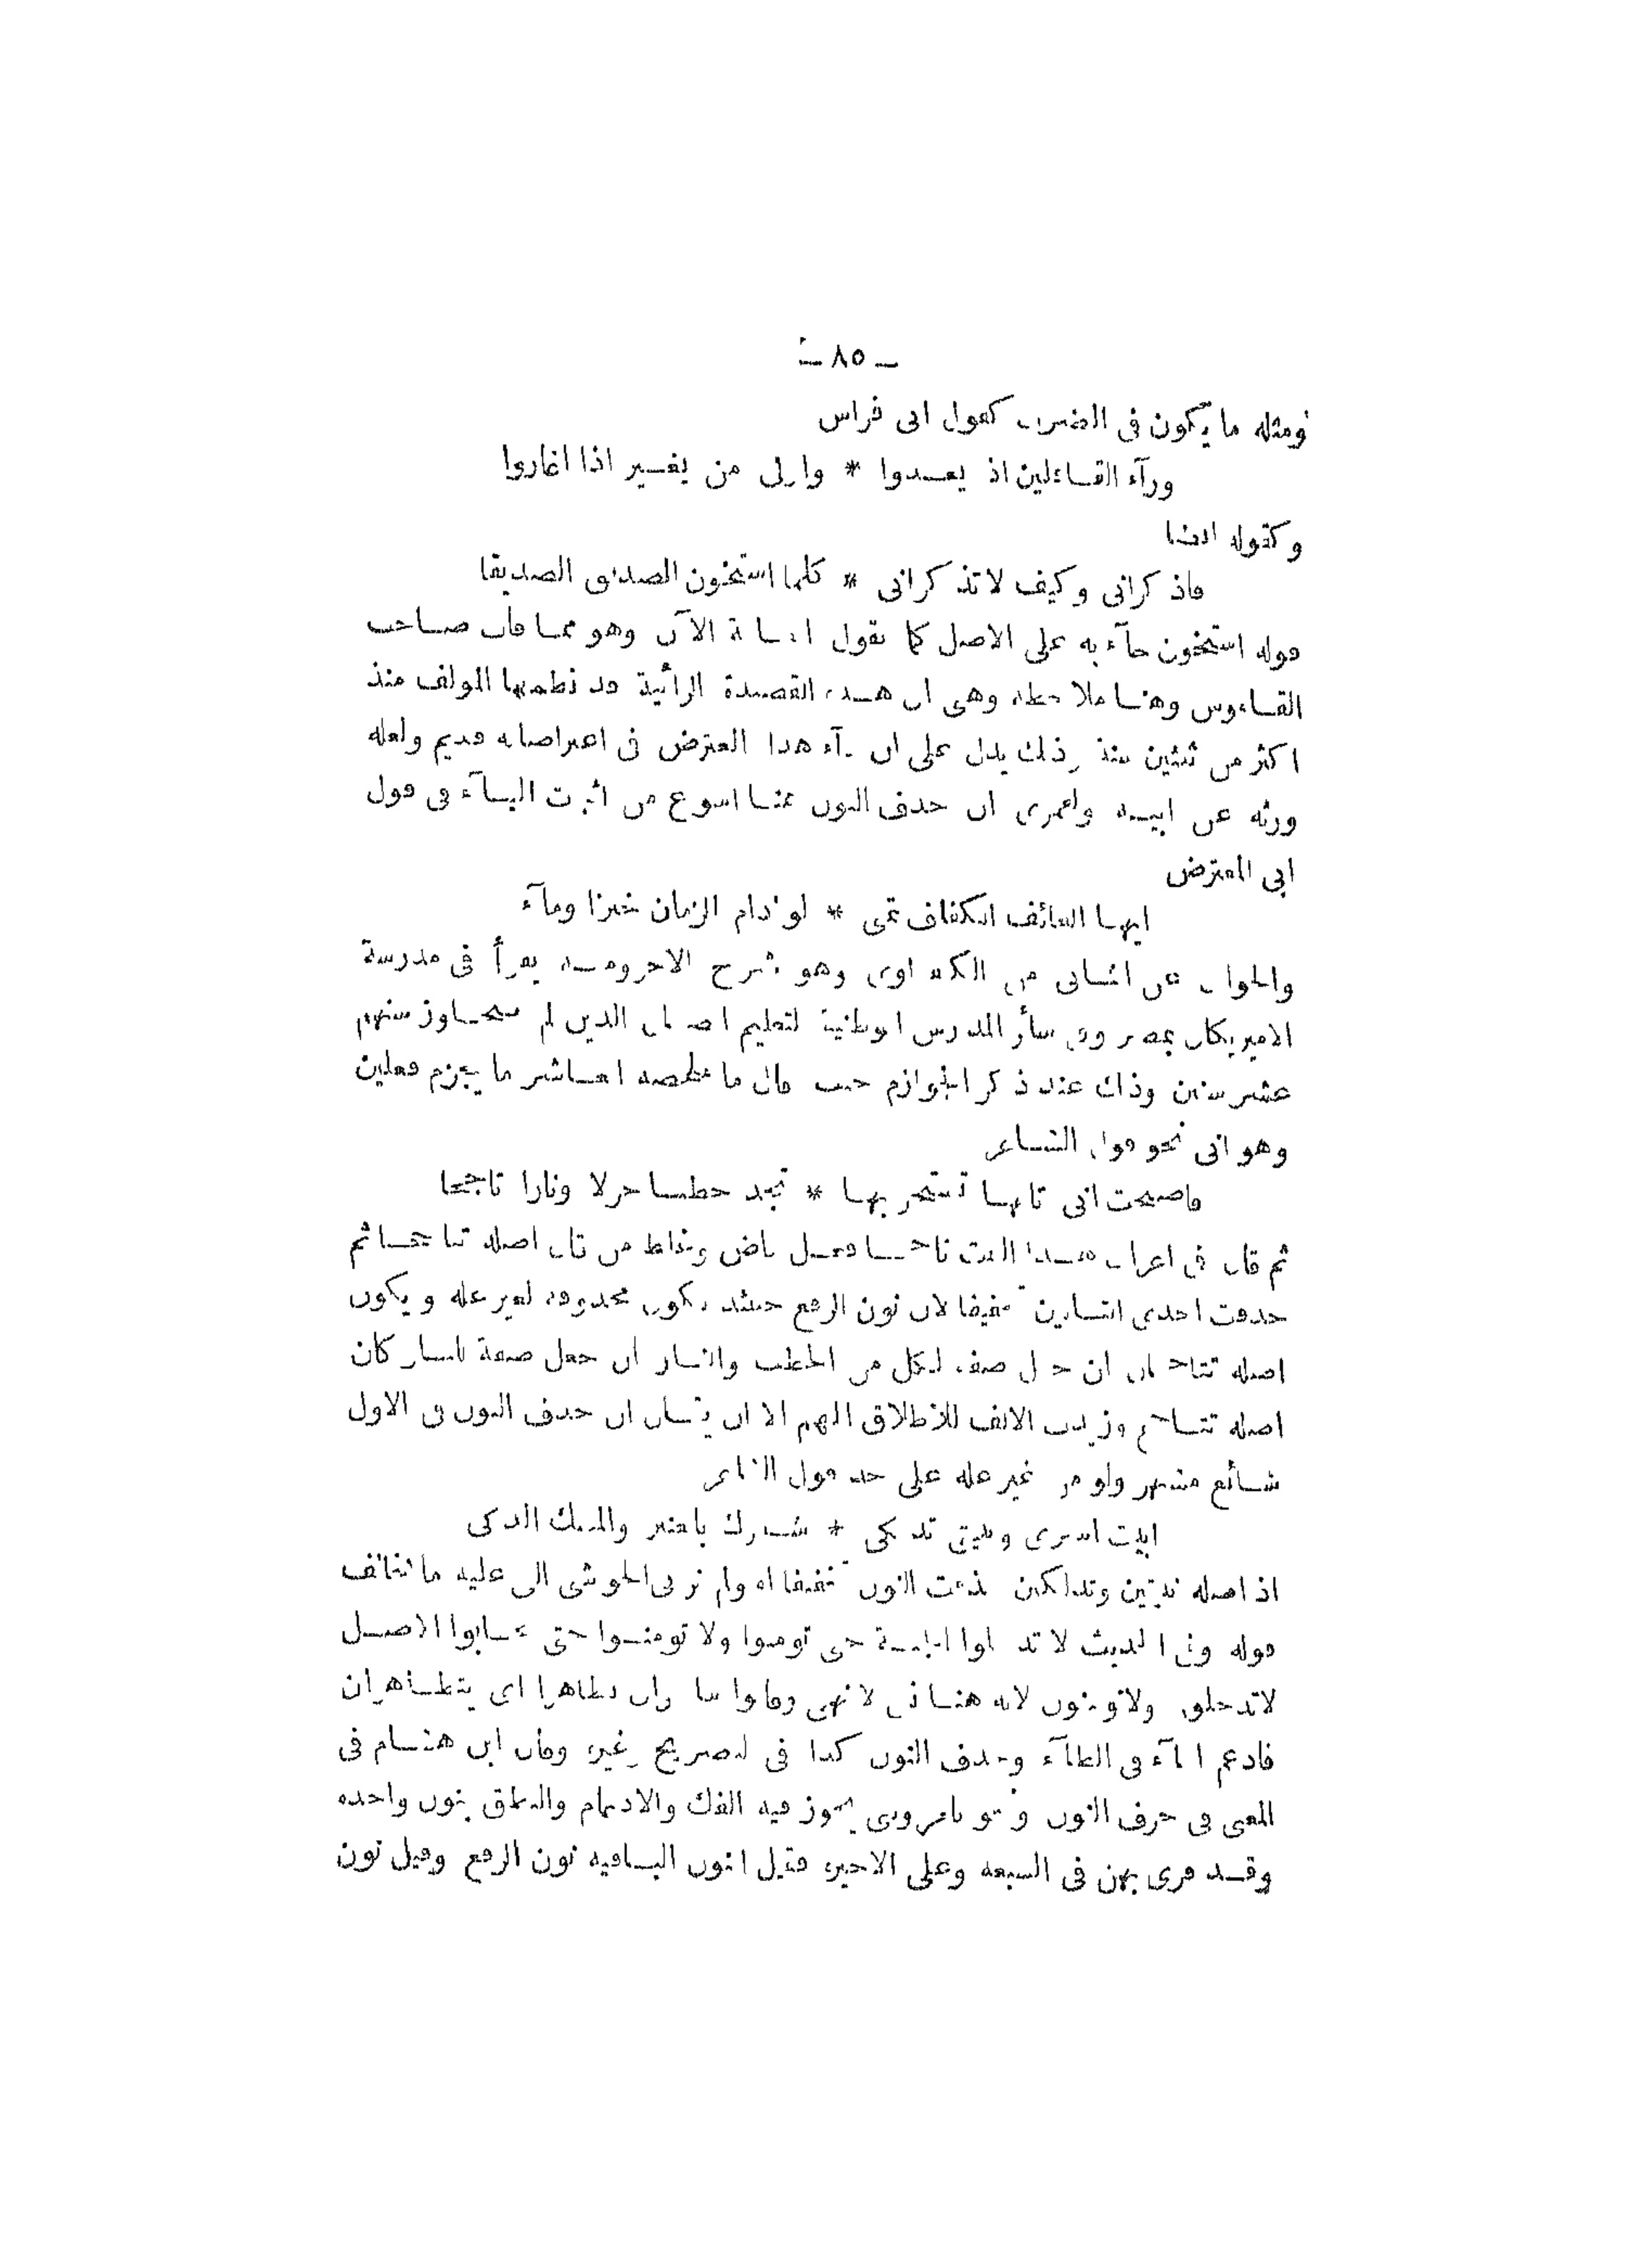 ـ ٨٥ ـ
ومثله ما يكون فى الضرب كقول ابى فراس
ورآء القائلين اذ يعدوا * من يغير اذا اغاروا
وكقوله ايضا
فاذكرانى وكيف لا تذكرانى * كلما استخون الصديق الصديقا
قوله استخون جآء به على الاصل كما تقول الآن وهو مما فات صاحب
القاموس وهنا ملاحظة وهى ان هذه القصيدة الرائية قد نظمها المولف منذ
اكثر من سنة وذلك يدل على ان هذا المعترض فى اعتراضاته قديم ولعله
ورثه عن ابيه ولعمرى ان حذف النون هنا اسوغ من اثبات اليآء فى قول
ابى المعترض
ايها العائف الكفاف تمى * لو ادام الزمان خبزا ومآء
والجواب عن الثانى من وهو شرح الاجرومية يقرأ فى مدرسة
الاميريكان بمصر وفى سائر المدارس الوطنية لتعليم الذين لم يتجاوز سنهم
عشر سنين وذلك عند ذكر الجوازم حيث قال ما ملخصه العاشر ما يجزم فعلين
وهو انى نحو قول الشاعر
فاصبحت انى تاتها تستجر بها * تجد حطبا جزلا ونارا تاججا
ثم قال فى اعراب هذا البيت تاججا فعل ماض اصله تتاججا ثم
حذفت احدى التاءين تخفيفا لان نون الرفع حينئذ تكون محذوفة لغير علة ويكون
اصله تتاججان ان جعل صفة لكل من الحطب والنار ان جعل صفة للنار كان
اصله تتاجج وزيدت الالف للاطلاق اللهم الا ان يقال ان حذف النون فى الاول
شائع مشهر ولو من غير علة على حد قول الشاعر
ابيت اسرى وتبيتى تدلكى * شعرك بالعنبر والمسك الذكى
اذ اصله تبيتين وتدلكين فحذفت النون تخفيفا اه ولم نر فى الحوشى التى عليه ما يخالف
قوله وفى الحديث لا تدخلوا الجنة حتى تومنوا ولا تومنوا حتى تحابوا الاصل
لا تدخلون ولا تومنون لانه هنا نفى لا نهى وقالوا ساحران تظاهرا اى يتظاهران
فادغم التآء فى الظآء وحذف النون كذا فى التصريح وغيره وقال ابن هشام فى
المغنى فى حرف النون ونحو تامرونى يجوز فيه الفك والادغام والنطق بنون واحدة
وقد قرى بهن فى السبعة وعلى الاخيرة فقيل النون الباقية نون الرفع وقيل نون